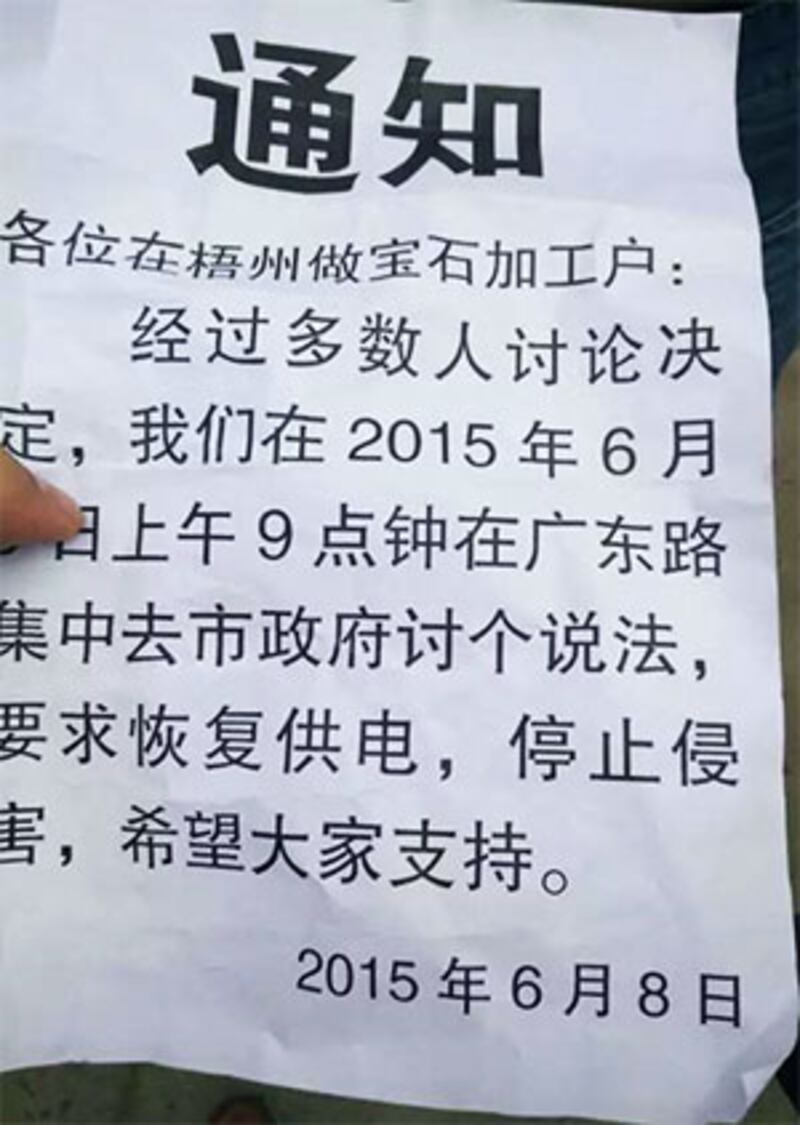 通知
各位在梧州做宝石加工户：
经过多数人讨论决
定，我们在2015年6月
日上午9点钟在广东路
集中去市政府讨个说法，
要求恢复供电，停止侵
害，希望大家支持。
2015年6月8日